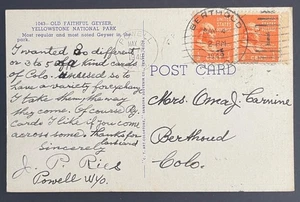 1043—OLD FAITHFUL GEYSER,
YELLOWSTONE NATIONAL PARK
Most regular and most noted Geyser in the
park.
I wanted 3 different
or 3 to 5 kind cards
of Colo. so
have a variety for exchang
I take them the way
they come. Of course Pkg
Cards I like if you come
across some. Thanks for
Sincerely
J. P. Ries
Powell Wyo.
POST CARD
BERTHOUD
Mrs. Oma J. Carnine
Berthoud
Colo.